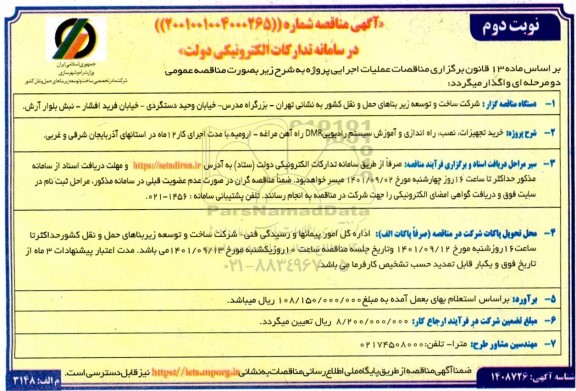 نوبت دوم
«آگهی مناقصه شماره ((2001001004000265))
در سامانه تدارکات الکترونیکی دولت»
جمهوری اسلامی ایران
وزارت راه و شهرسازی
شرکت مادر تخصصی ساخت و توسعه زیربناهای حمل و نقل کشور
بر اساس ماده ۱۳ قانون برگزاری مناقصات عملیات اجرایی پروژه به شرح زیر بصورت مناقصه عمومی
دو مرحله ای واگذار میگردد:
۱- دستگاه مناقصه گزار: شرکت ساخت و توسعه زیر بناهای حمل و نقل کشور به نشانی تهران - بزرگراه مدرس- خیابان وحید دستگردی - خیابان فرید افشار - نبش بلوار آرش.
۲- شرح پروژه: خرید تجهیزات، نصب، راه اندازی و آموزش سیستم رادیویی DMR راه آهن مراغه - ارومیه.با مدت اجرای کار ۱۲ماه در استانهای آذربایجان شرقی و غربی.
۳- سیر مراحل دریافت اسناد و برگزاری فرآیند مناقصه: صرفاً از طریق سامانه تدارکات الکترونیکی دولت (ستاد) به آدرس https://setadiran.ir و مهلت دریافت اسناد از سامانه
مذکور حداکثر تا ساعت ۱۶روز چهارشنبه مورخ ۱۴۰۱/۰۹/۰۲ میسر خواهدبود. ضمناً مناقصه گران در صورت عدم عضویت قبلی در سامانه مذکور، مراحل ثبت نام در
سایت فوق و دریافت گواهی امضای الکترونیکی را جهت شرکت در مناقصه به انجام رسانند. تلفن پشتیبانی سامانه : ۱۴۵۶-۰۲۱
ParsNamadData
۴- محل تحویل پاکات شرکت در مناقصه (صرفاً پاکات الف): اداره کل امور پیمانها و رسیدگی فنی- شرکت ساخت و توسعه زیربناهای حمل و نقل کشورحداکثرتا
ساعت۱۶روزشنبه مورخ ۱۴۰۱/۰۹/۱۲ وتاریخ جلسه مناقصه ساعت ۱۰روزیکشنبه مورخ ۱۴۰۱/۰۹/۱۳می باشد. مدت اعتبار پیشنهادات ۳ ماه از
تاریخ فوق و یکبار قابل تمدید حسب تشخیص کارفرما می باشد.
۰۲۱-۸۸۳۴۹۶۷۰-۵
۵- برآورد: براساس استعلام بهای بعمل آمده به مبلغ ۱۰۸/۱۵۰/۰۰۰/۰۰۰ ریال میباشد.
۶- مبلغ تضمین شرکت در فرآیند ارجاع کار: ۸/۲۰۰/۰۰۰/۰۰۰ ریال تعیین میگردد.
۷- مهندسین مشاور طرح: مترا- تلفن: ۰۲۱۷۴۵۰۸۰۰۰
ضمناً آگهی مناقصه از طریق پایگاه ملی اطلاع رسانی مناقصات به نشانی https://iets.mporg.ir نیز قابل دسترسی است.
شناسه آگهی: ۱۴۰۸۷۲۶
م الف: ۳۱۴۸